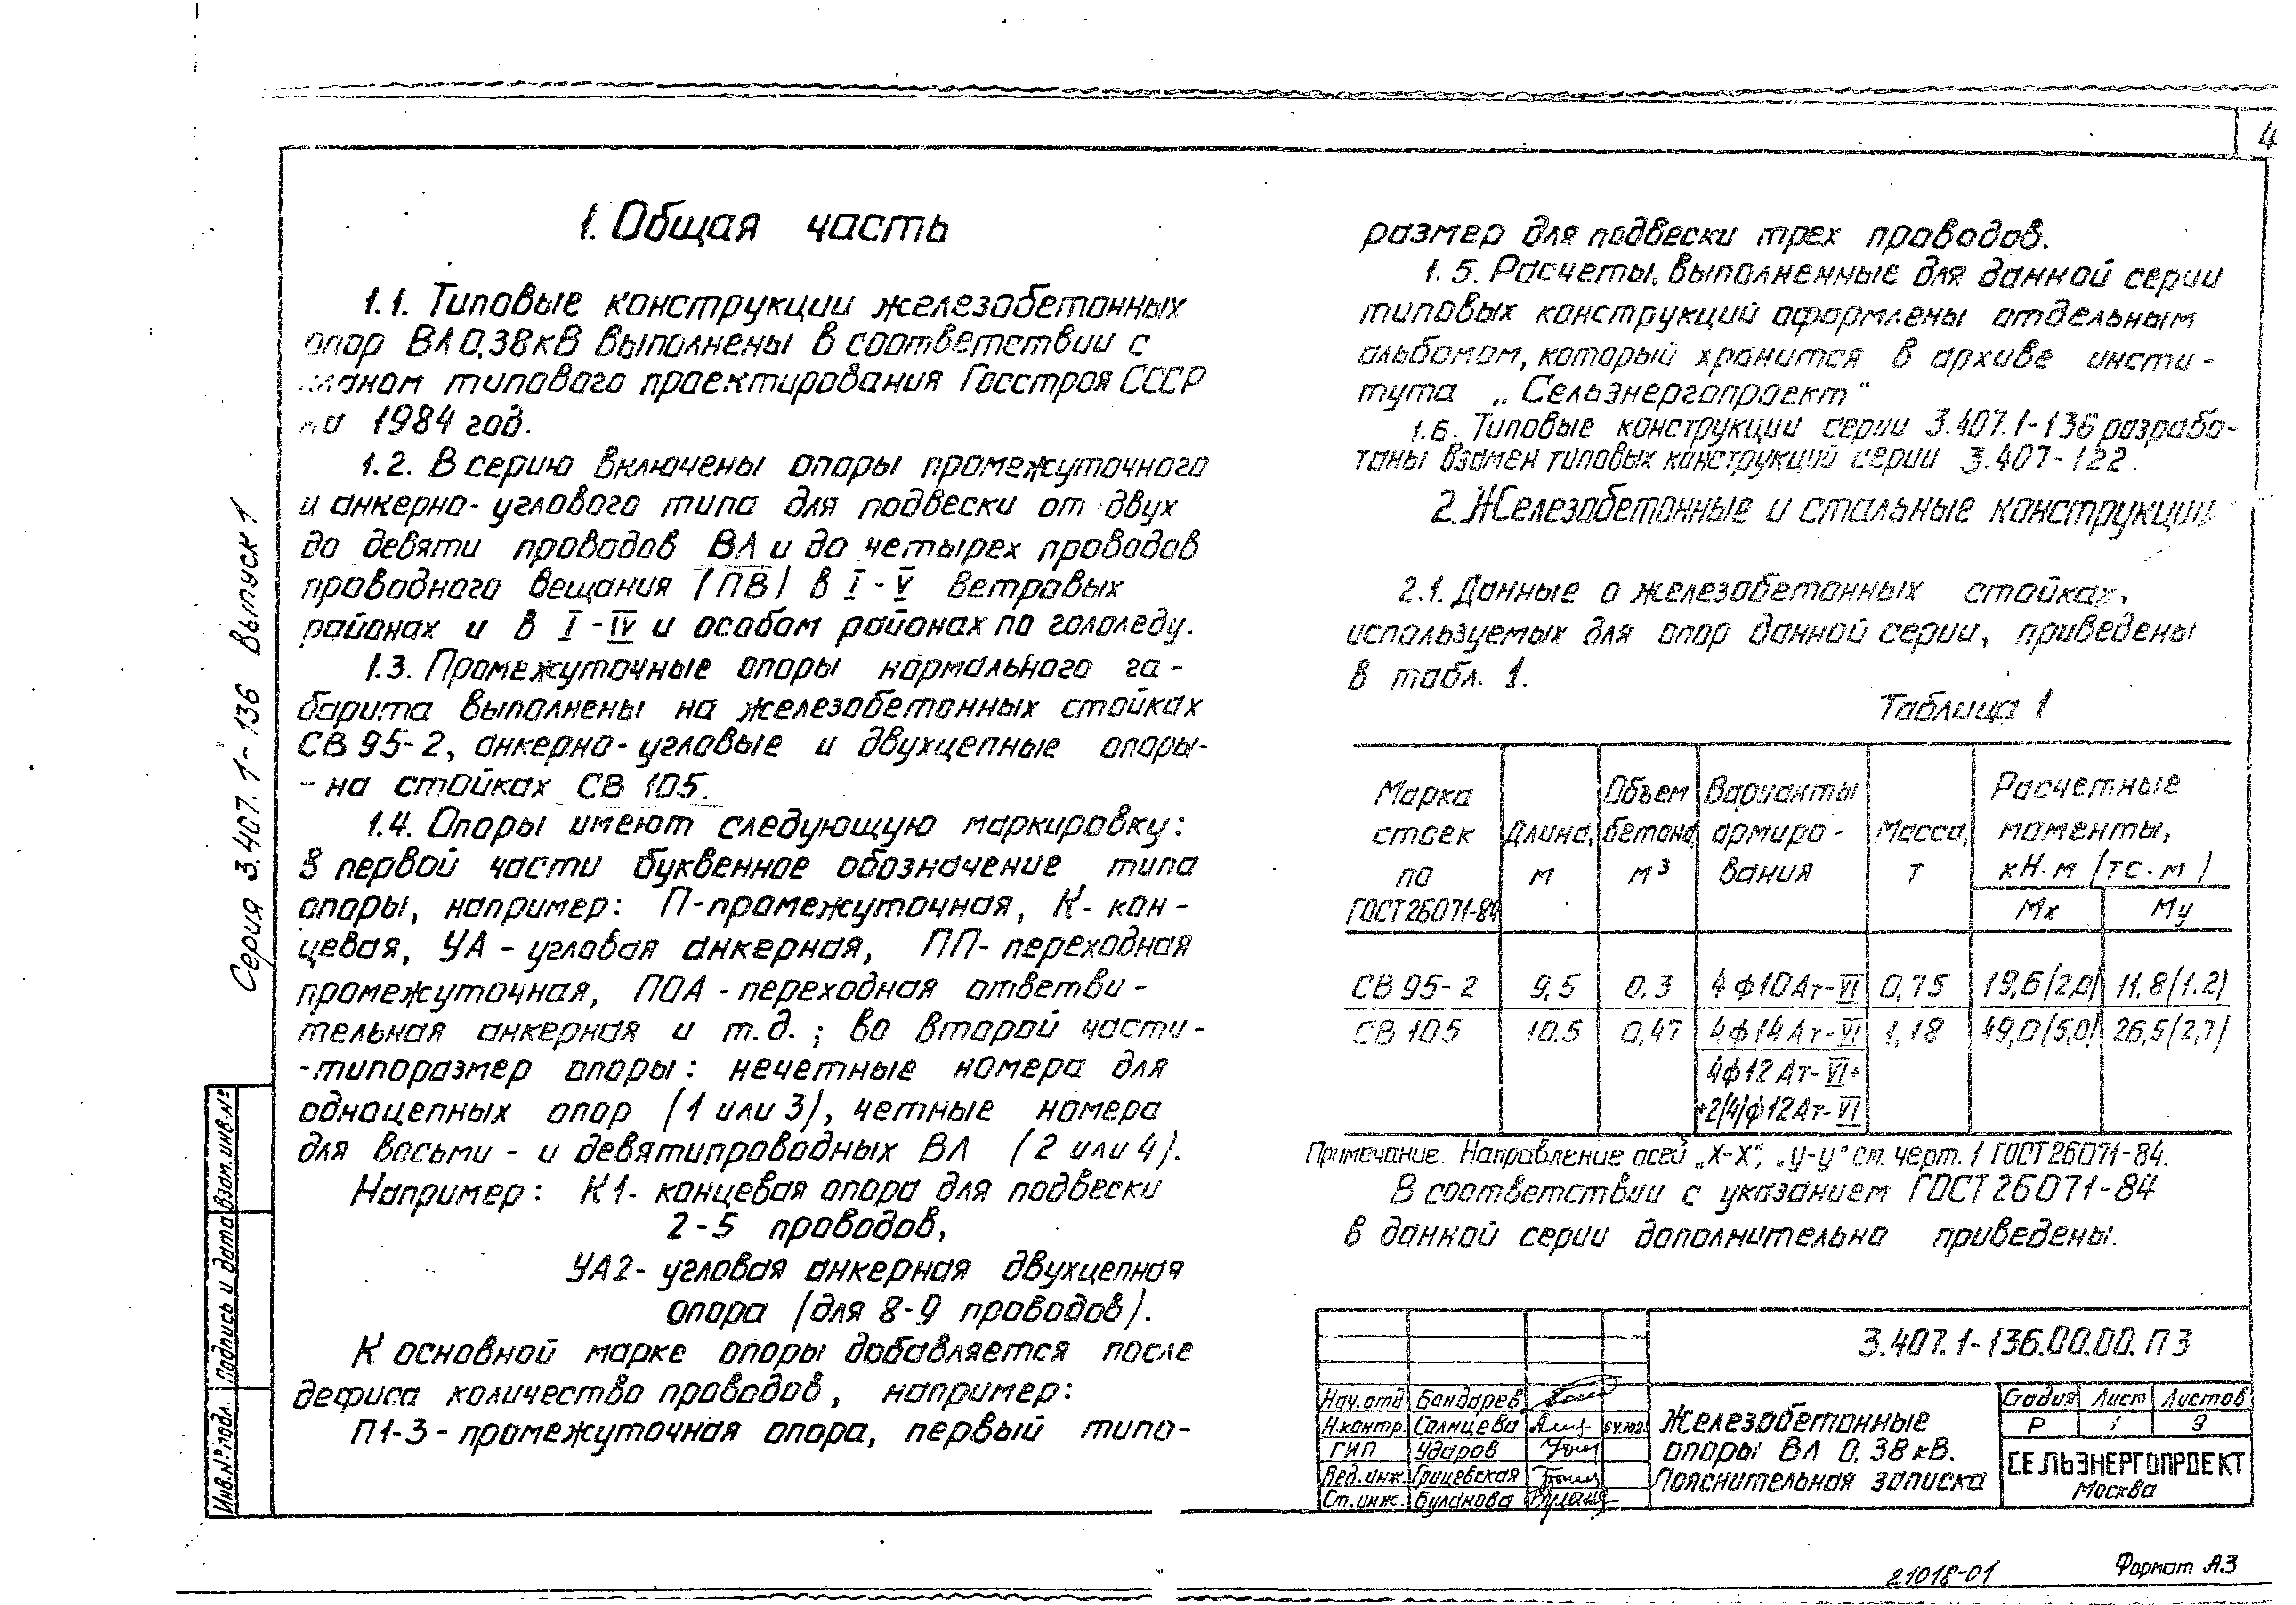 4
1. Общая часть
1.1. Типовые конструкции железобетонных
опор ВЛ 0,38кВ выполнены в соответствии с
планом типового проектирования Госстроя СССР
на 1984 год.
1.2. В серию включены опоры промежуточного
и анкерно-углового типа для подвески от двух
до девяти проводов ВЛ и до четырех проводов
проводного вещания (ПВ) в I - V ветровых
районах и в I - IV и особом районах по гололеду.
1.3. Промежуточные опоры нормального га-
барита выполнены на железобетонных стойках
СВ 95-2, анкерно-угловые и двухцепные опоры-
- на стойках СВ 105.
1.4. Опоры имеют следующую маркировку:
в первой части буквенное обозначение типа
опоры, например: П-промежуточная, К-кон-
цевая, УА - угловая анкерная, ПП- переходная
промежуточная, ПОА - переходная ответви-
тельная анкерная и т.д.; во второй части-
-типоразмер опоры: нечетные номера для
одноцепных опор (1 или 3), четные номера
для восьми - и девятипроводных ВЛ (2 или 4).
Например: К1- концевая опора для подвески
2-5 проводов,
УА2- угловая анкерная двухцепная
опора (для 8-9 проводов).
К основной марке опоры добавляется после
дефиса количество проводов, например:
П1-3 - промежуточная опора, первый типо-
размер для подвески трех проводов.
1.5. Расчеты, выполненные для данной серии
типовых конструкций оформлены отдельным
альбомом, который хранится в архиве инсти-
тута „Сельэнергопроект"
1.6. Типовые конструкции серии 3.407.1-136 разрабо-
таны взамен типовых конструкций серии 3.407-122.
2. Железобетонные и стальные конструкции
2.1. Данные о железобетонных стойках,
используемых для опор данной серии, приведены
в табл. 1.
Таблица 1
Марка Объем Варианты Расчетные
стоек Длина, бетона, армиро- Масса, моменты,
по м м³ вания т кН.м (тс.м)
ГОСТ 26071-84 Мх Му
СВ 95-2 9,5 0,3 4ф10Ат-VI 0,75 19,6(2,0) 11,8(1.2)
СВ 105 10.5 0,47 4ф14Ат-VI 1,18 49,0(5,0) 26,5(2,7)
4ф12 Ат-VI+
+2(4)ф12Ат-VI
Примечание. Направление осей „Х-Х", „у-у" см. черт. 1 ГОСТ 26071-84.
В соответствии с указанием ГОСТ 26071-84
в данной серии дополнительно приведены:
Серия 3.407.1-136 Выпуск 1
Взам. инв.№
Подпись и дата
Инв.№ подл.
3.407.1-136.00.00.ПЗ
Нач.отд Бондарев
Н.контр. Солнцева
ГИП Ударов
Вед.инж. Грицевская
Ст.инж. Буланова
Железобетонные
опоры ВЛ 0,38 кВ.
Пояснительная записка
Стадия Лист Листов
Р 1 9
СЕЛЬЭНЕРГОПРОЕКТ
Москва
21018-01
Формат А3